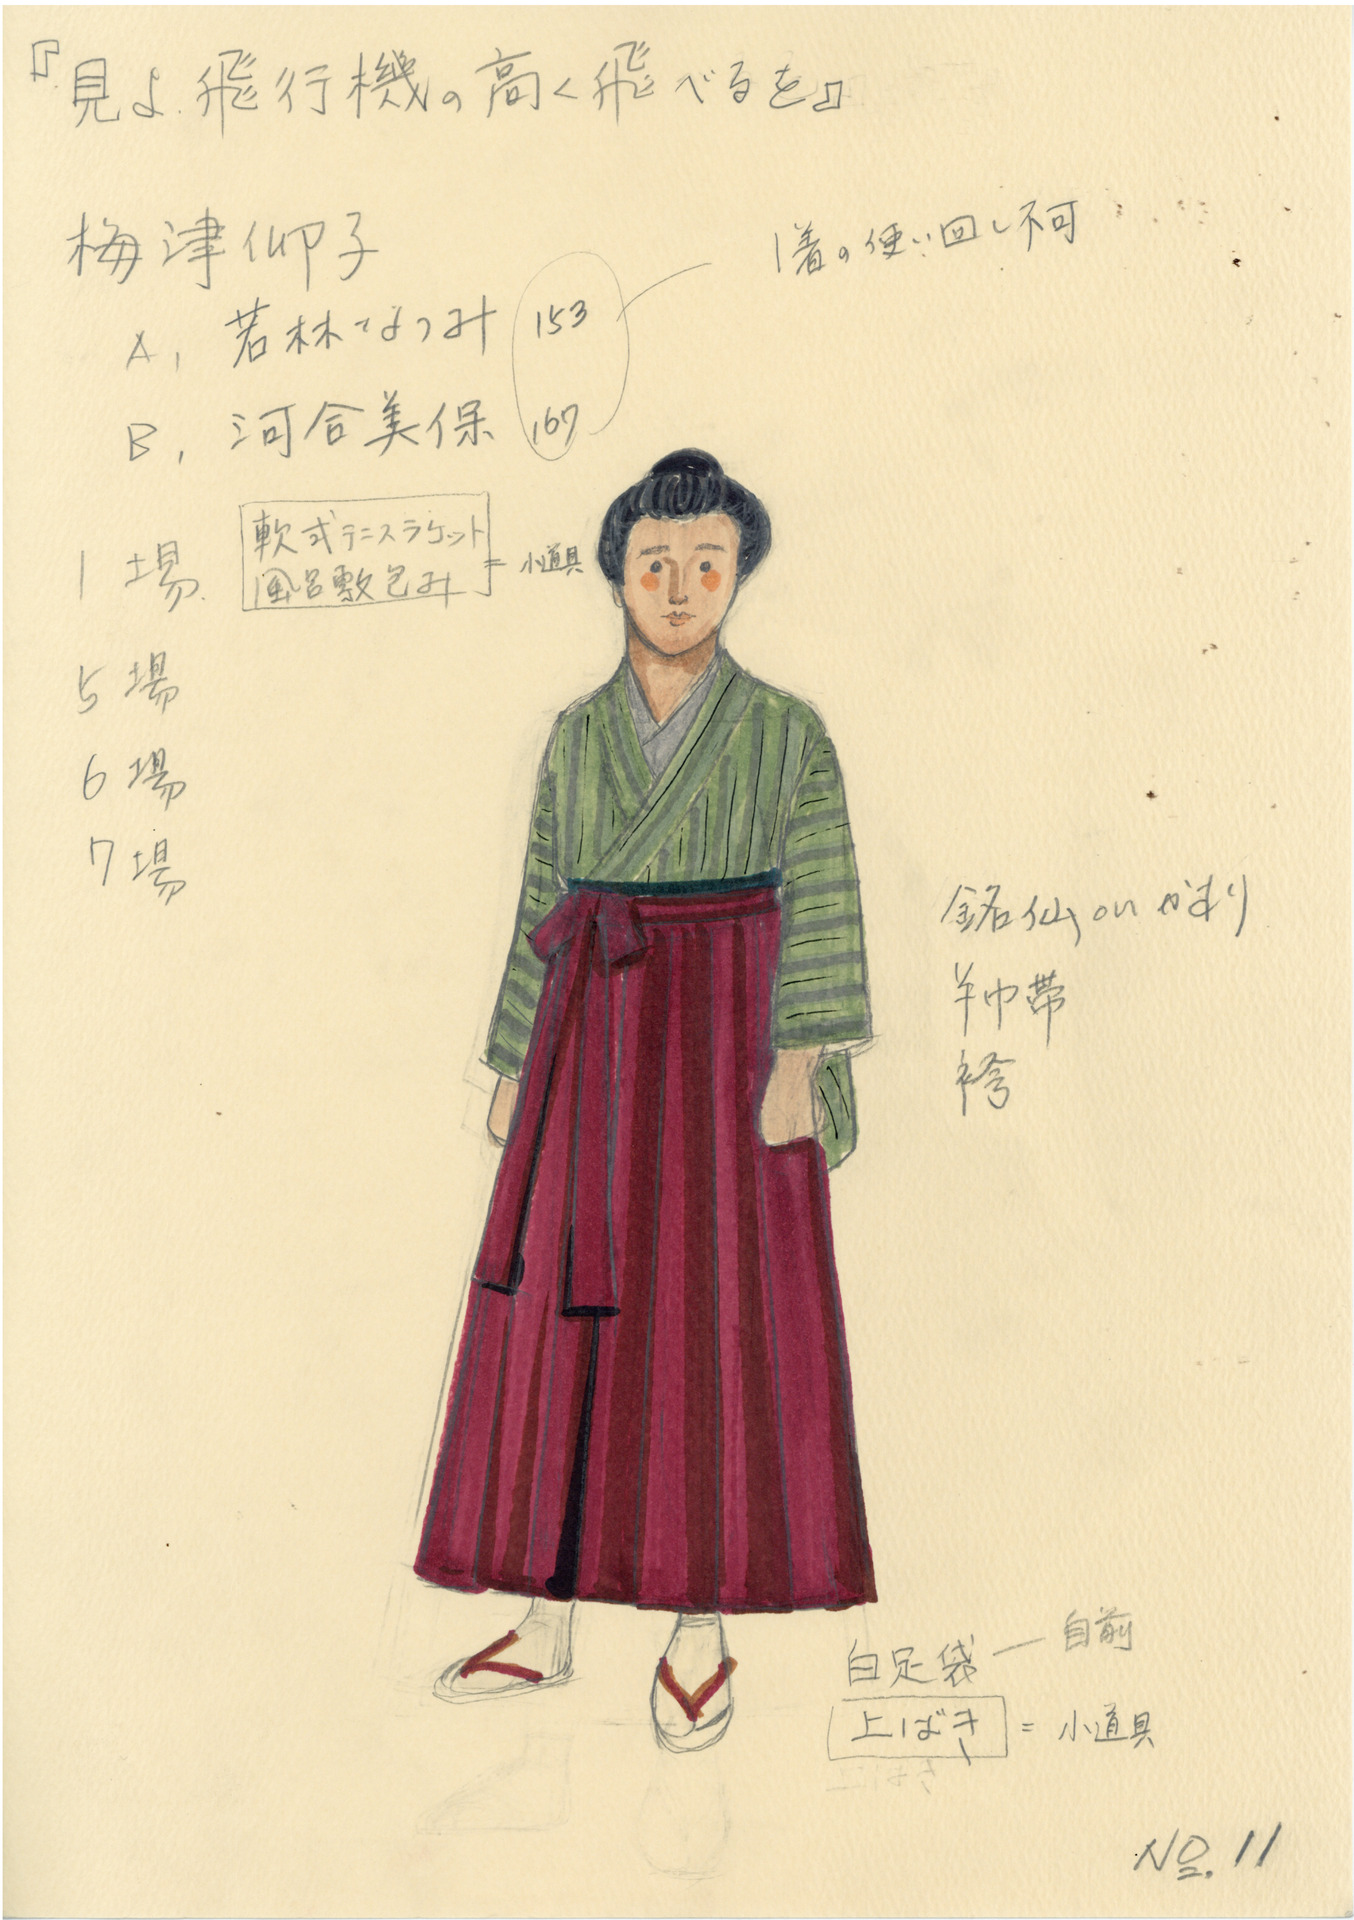 『見よ飛行機の高く飛べるを』
梅津仰子
1着の使い回し不可
A, 若林なつみ 153
B, 河合美保 167
1場 軟式テニスラケット
風呂敷包み = 小道具
5場
6場
7場
銘仙 or かすり
半巾帯
袴
白足袋 — 自前
上ばき = 小道具
No. 11